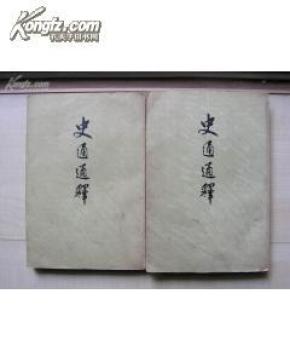 Kongfz.com
孔夫子旧书网
史通通釋
史通通釋